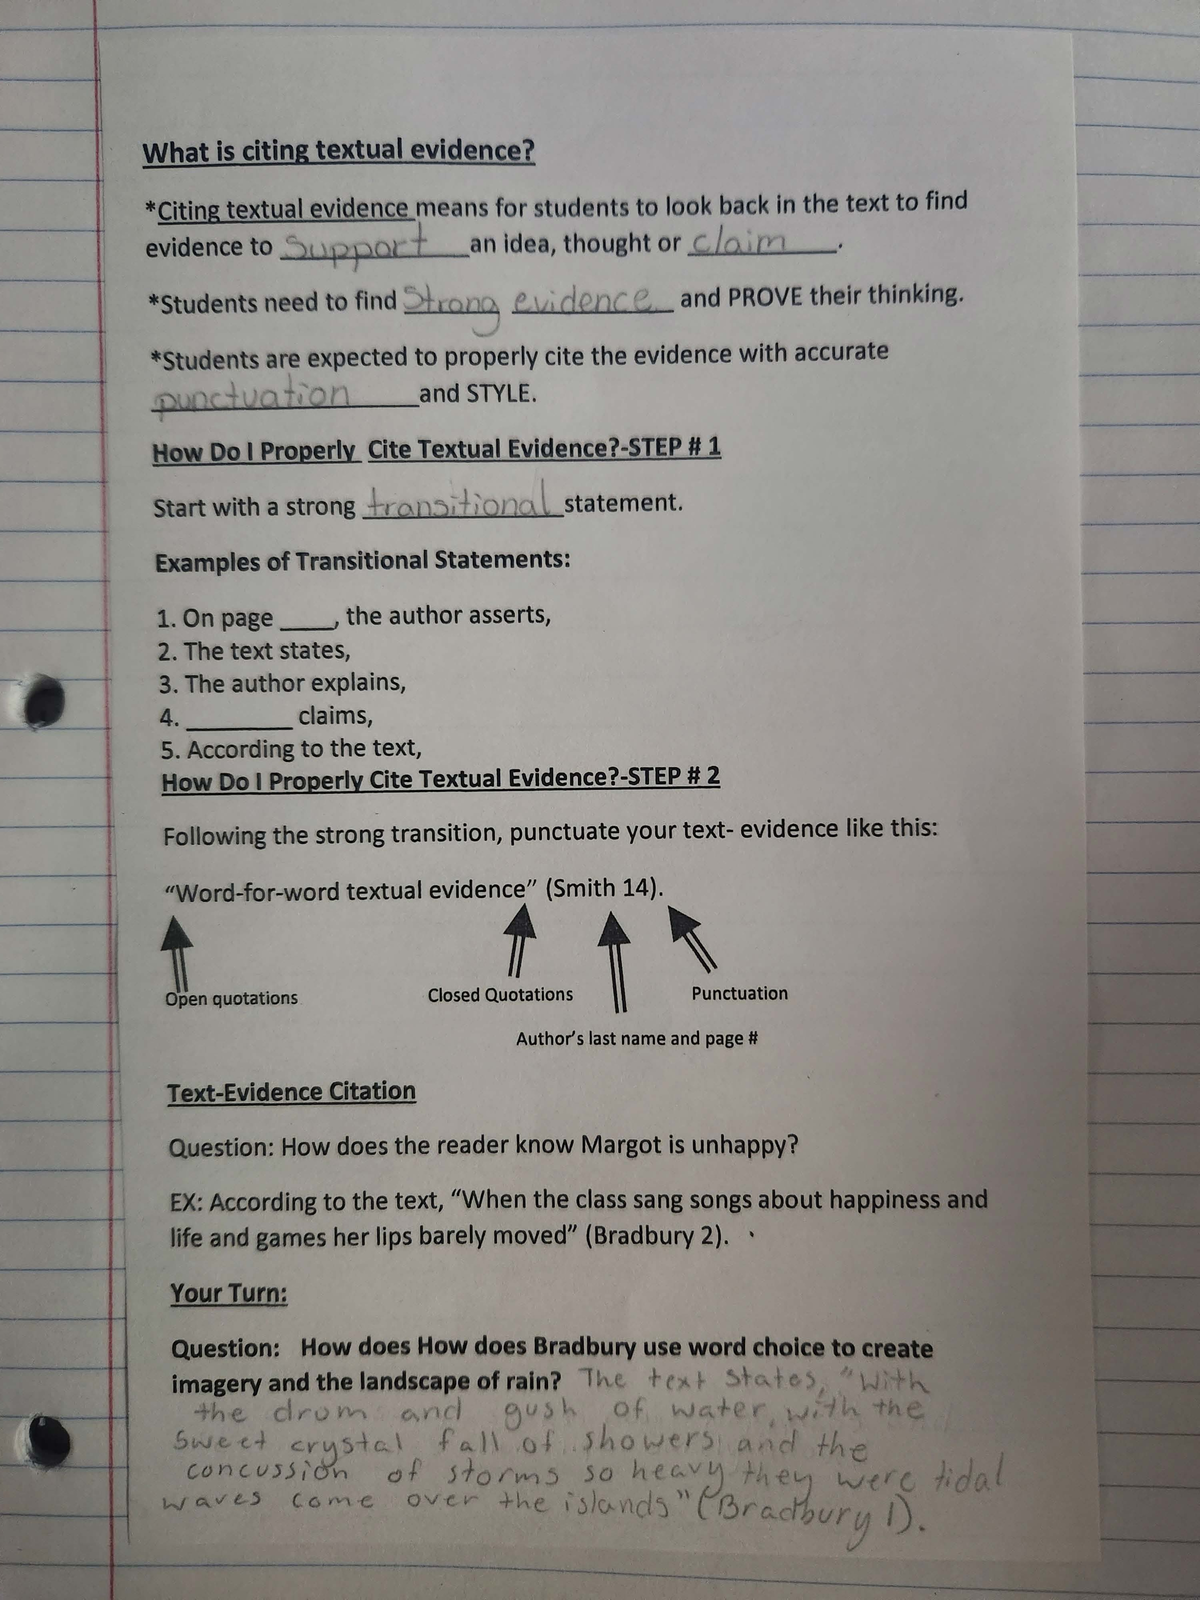 What is citing textual evidence?
*Citing textual evidence means for students to look back in the text to find
evidence to support an idea, thought or claim.
*Students need to find Strong evidence and PROVE their thinking.
*Students are expected to properly cite the evidence with accurate
punctuation and STYLE.
How Do I Properly Cite Textual Evidence?-STEP # 1
Start with a strong transitional statement.
Examples of Transitional Statements:
1. On page ____, the author asserts,
2. The text states,
3. The author explains,
4. _________ claims,
5. According to the text,
How Do I Properly Cite Textual Evidence?-STEP # 2
Following the strong transition, punctuate your text- evidence like this:
“Word-for-word textual evidence” (Smith 14).
Open quotations Closed Quotations Punctuation
Author’s last name and page #
Text-Evidence Citation
Question: How does the reader know Margot is unhappy?
EX: According to the text, “When the class sang songs about happiness and
life and games her lips barely moved” (Bradbury 2).
Your Turn:
Question: How does How does Bradbury use word choice to create
imagery and the landscape of rain? The text States, "With
the drom and gush of water, with the
Sweet crystal fall of showers and the
concussion of storms so heavy they were tidal
waves come over the islands" (Bradbury 1).